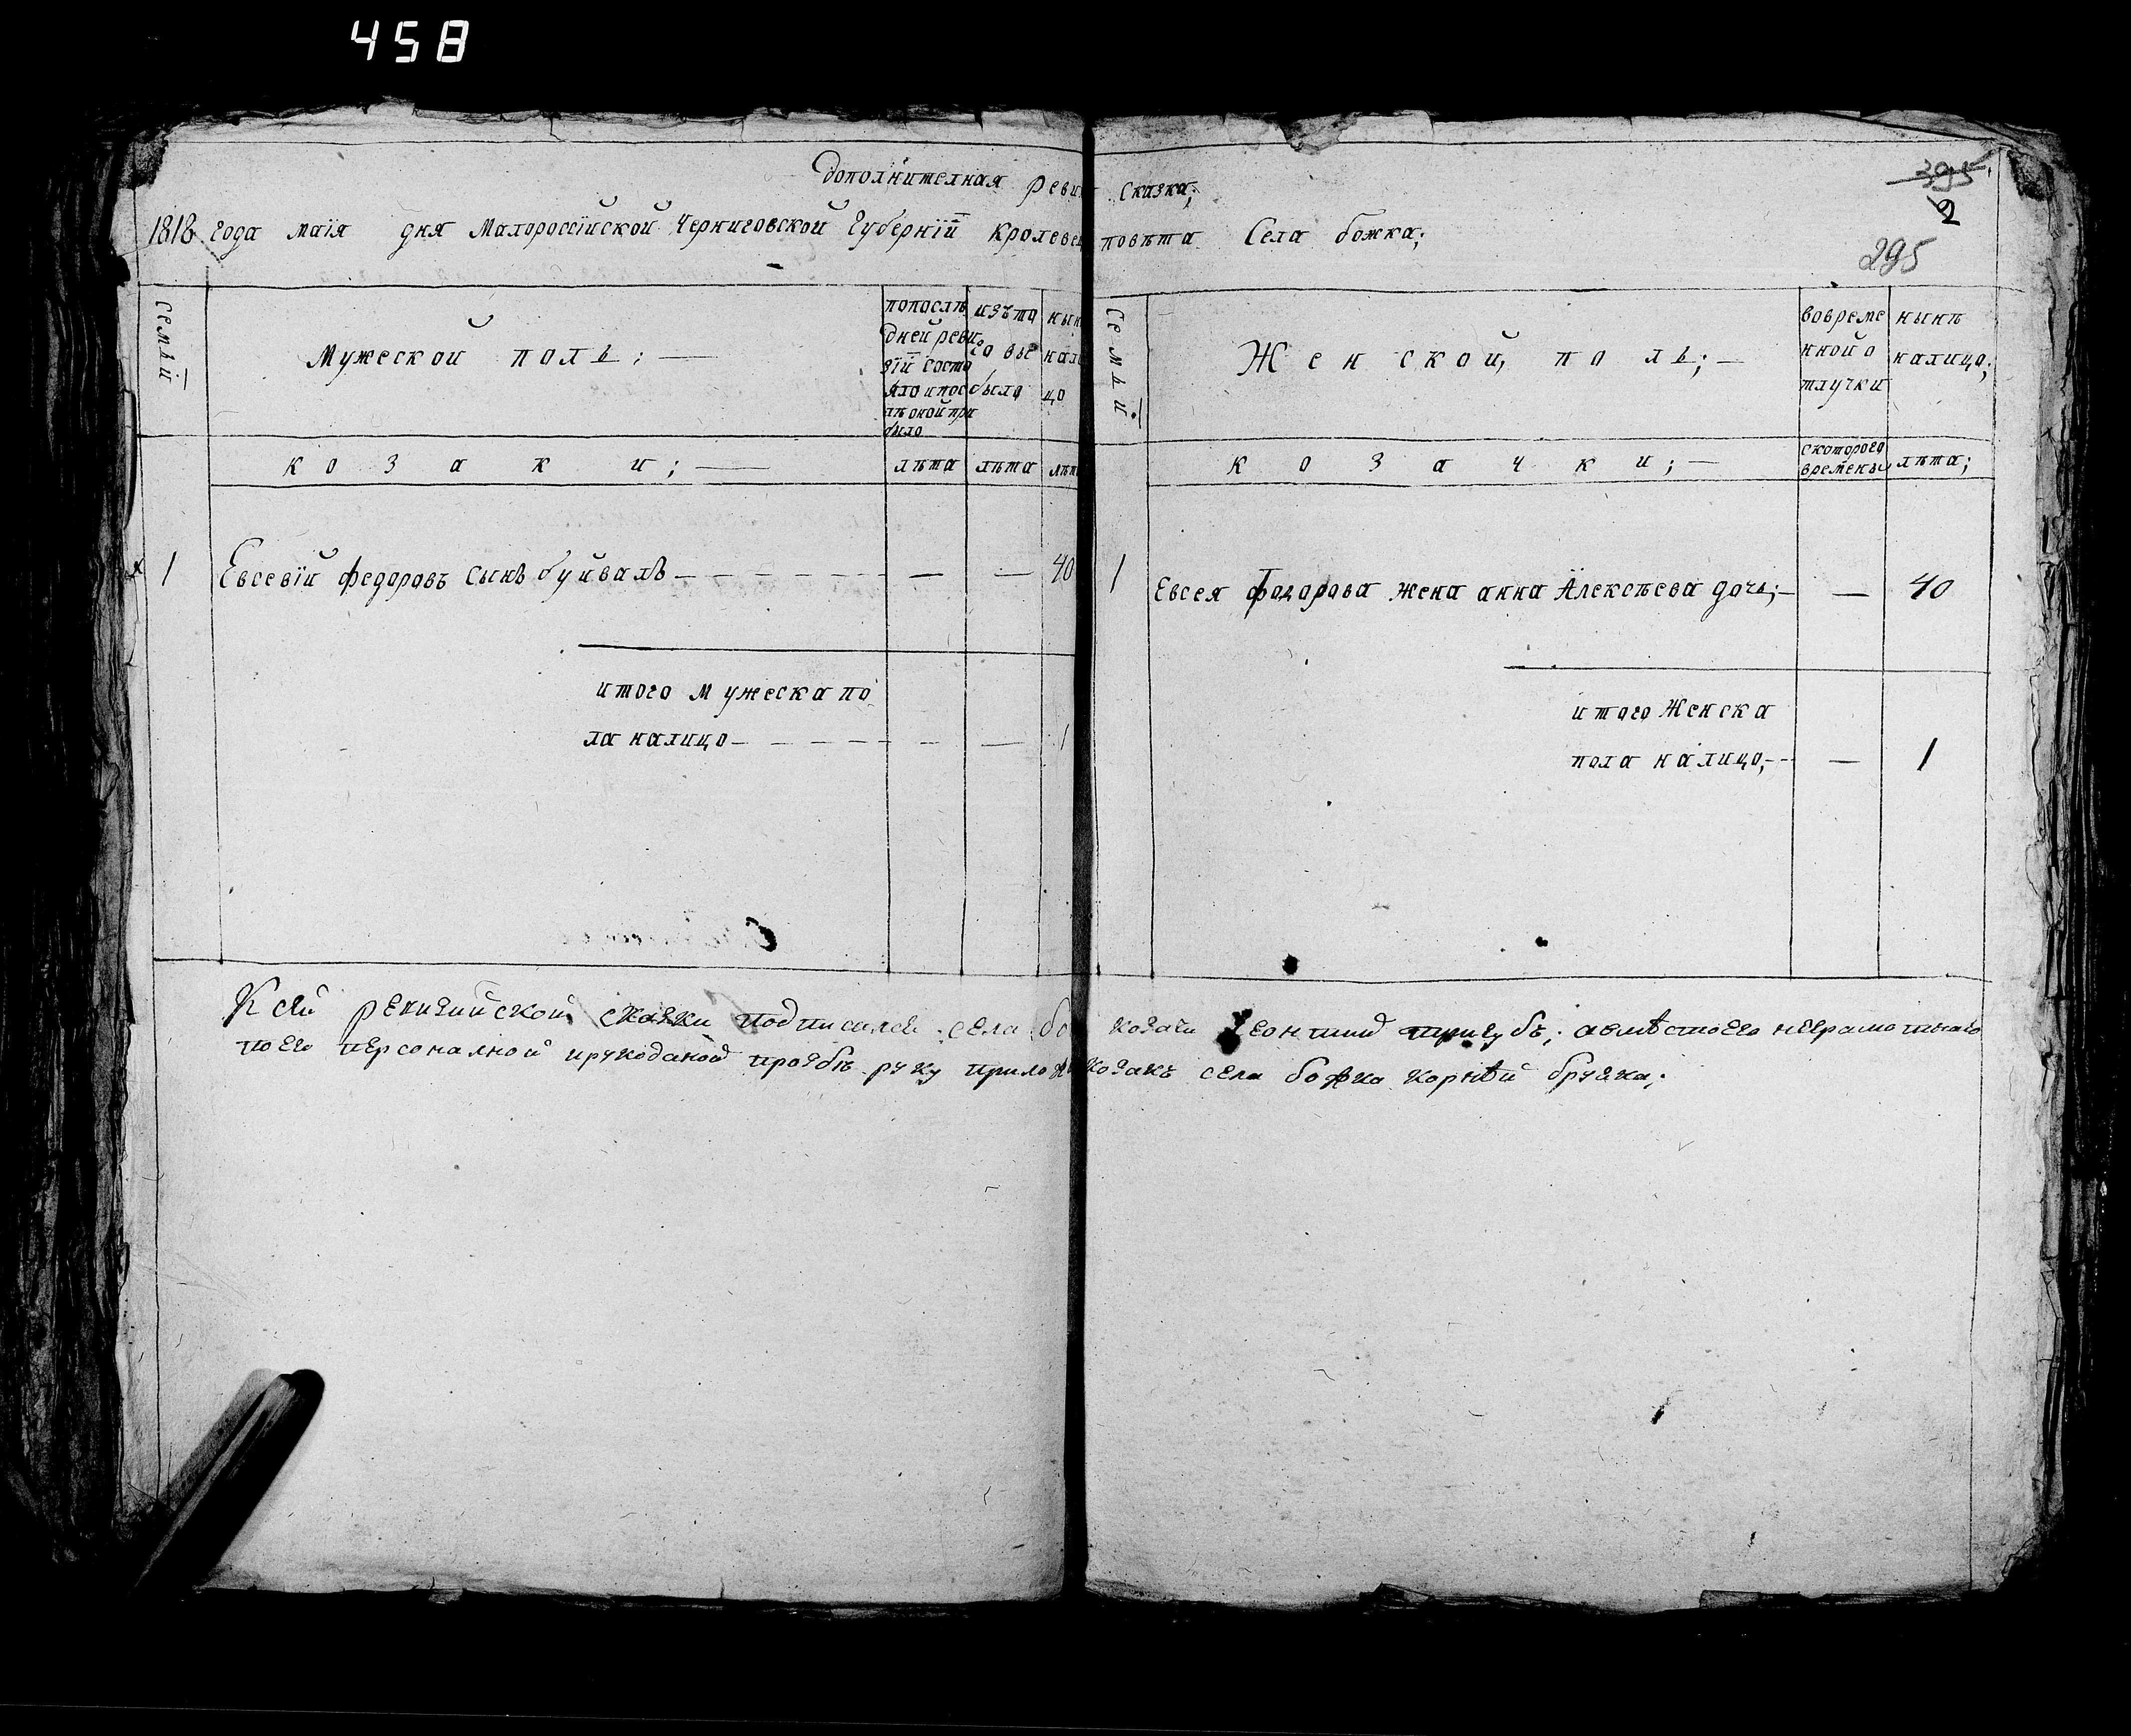 458
Дополнителная реви сказка;
395
2
295
1818 года маїя дня Малороссїйской Черниговской Губернїи Кролевец повѣта Села божка;
Семьи
Мужеской полъ:
попослѣ
дней реви
зїи состо
яло и пос
лѣ оной при
было
изъ то
го вы
было
нын
нали
цо
Семьи
Женской, полъ;
вовреме
нной о
тлучки
нынѣ
налицо;
козаки;
лѣта
лѣта
лѣт
козачки;
скоторого
времены
лѣта;
1 Евсевїй федоровъ сынъ буйвалъ — — 40
1 Евсея федорова жена анна Алексѣева дочь; — 40
итого мужеска по
ла налицо — — 1
итого Женска
пола налицо; — 1
К сей ревизийской скажки подписался села бо козакъ Леонтий; авмѣсто его неграмотнаго
по его персоналной ирукоданой прозбѣ руку прилож козакъ села божка корнѣй брушка;